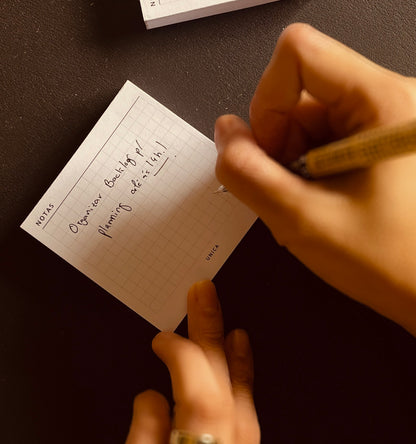 NOTAS
Organizar Backlog p/
planning até as 14h!
UNICA